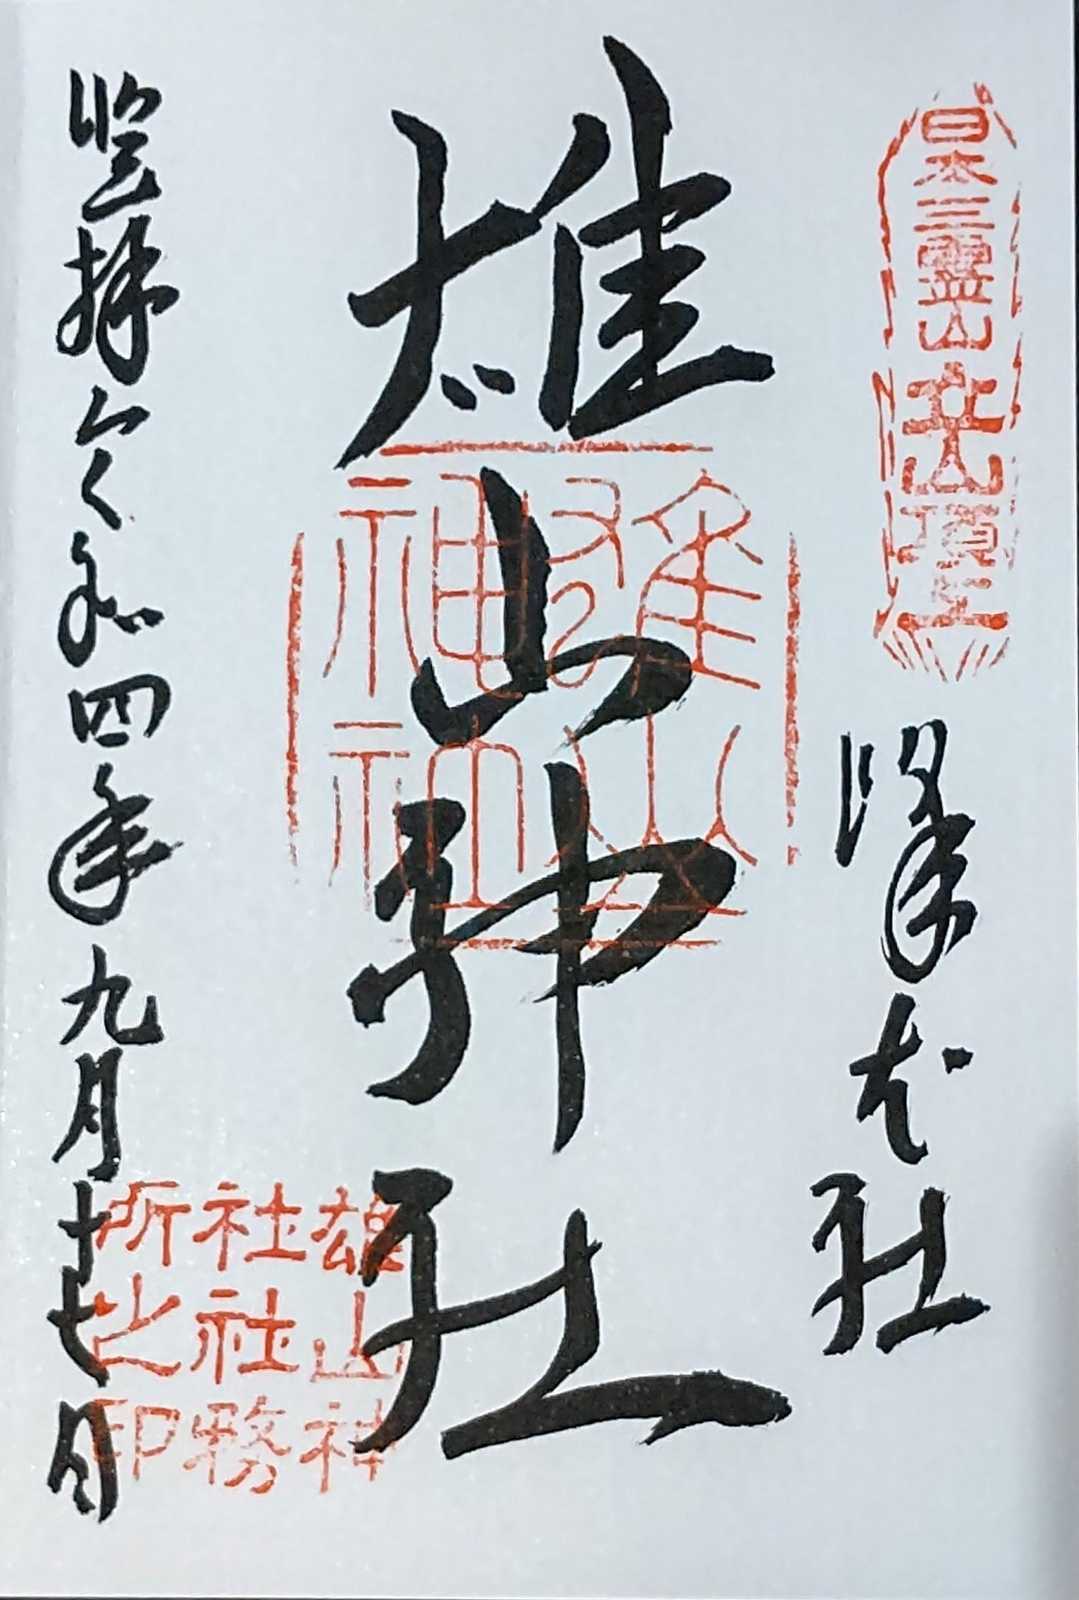 日本三霊山立山頂上
峰本社
雄山神社
雄山
神社
登拝令和四年九月十七日
雄山神
社社務
所之印